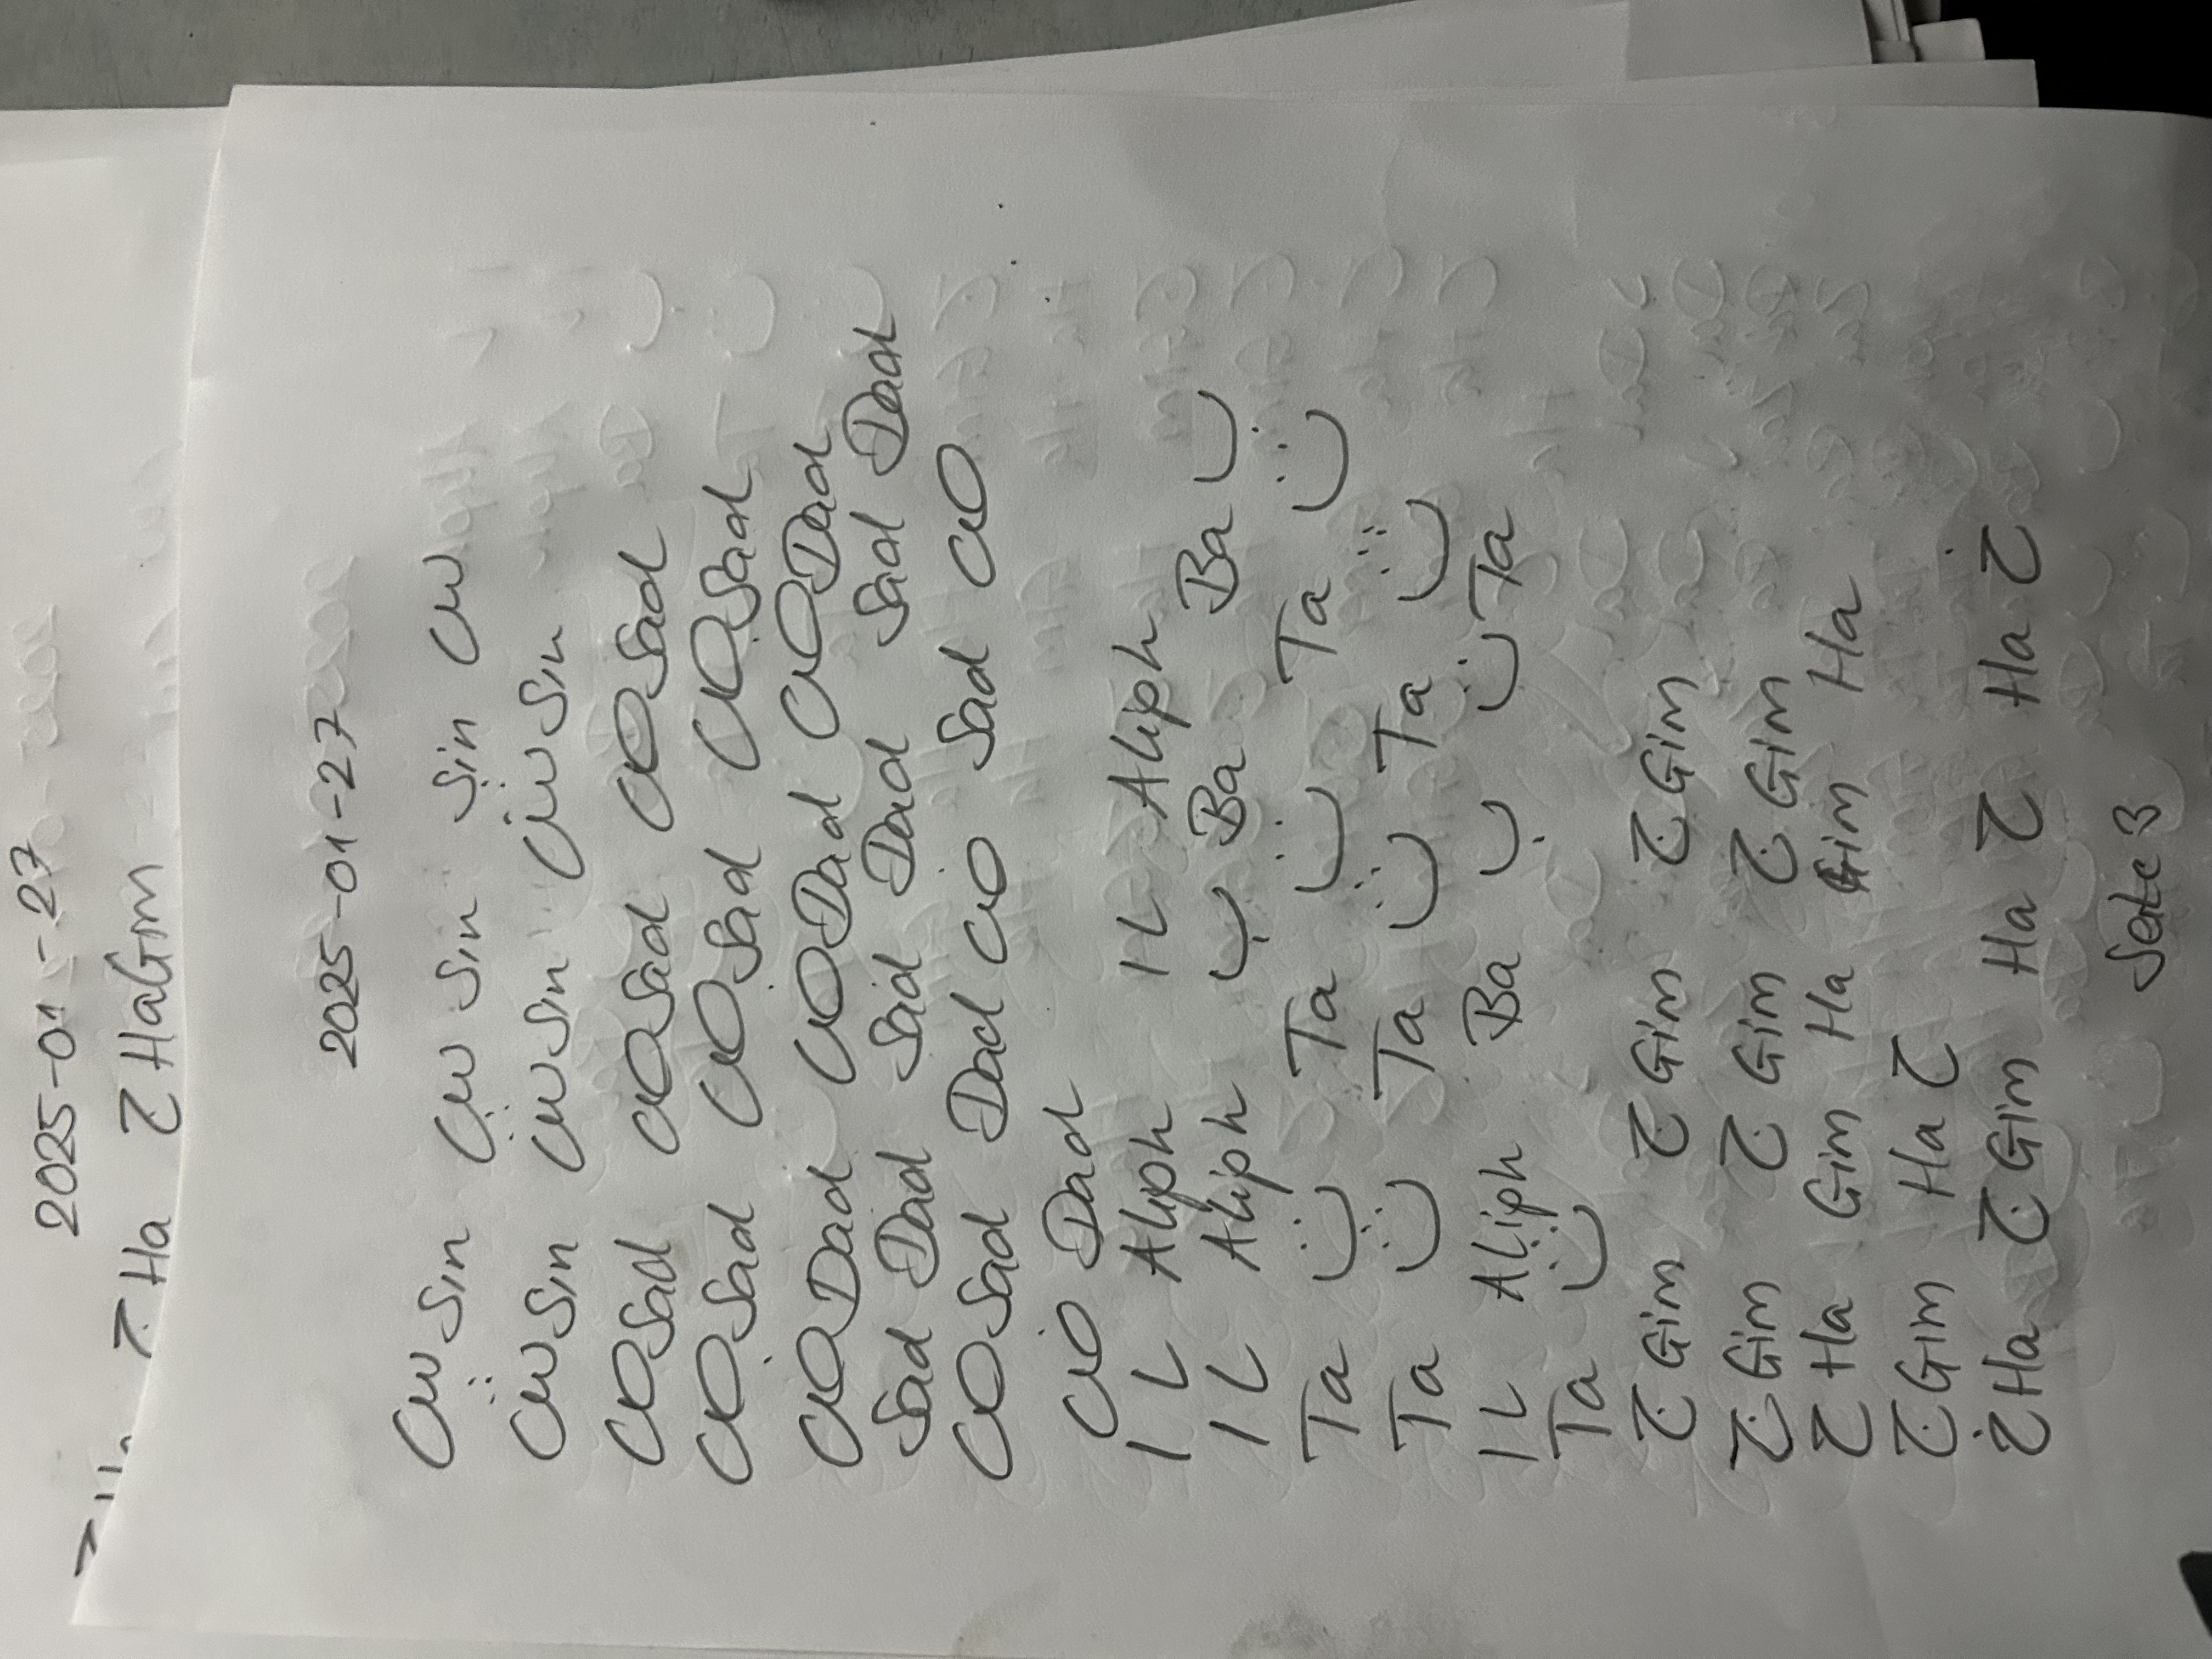 2025-01-27
Ha ح HaGim
2025-01-27
س Sin س Sin Sin س
س Sin س Sin س Sin
ص Sad ص Sad ص Sad
ص Sad ص Sad ص Sad
ص Dad ص Dad ص Dad
Sad Dad Sad Dad Sad Dad
ص Sad Dad ص Sad ص
ض Dad
ا ل Aliph ا ل Aliph
ا ل Aliph ب Ba Ba
Ta ت Ta Ta ت
Ta ت Ta ث Ta ث
ا ل Aliph Ba ب ت Ta
Ta ت
ج Gim ج Gim ج Gim
ج Gim ج Gim ج Gim
ح Ha Gim Ha Gim Ha
ج Gim Ha ح
خ Ha ج Gim Ha ح Ha خ
Seite 3